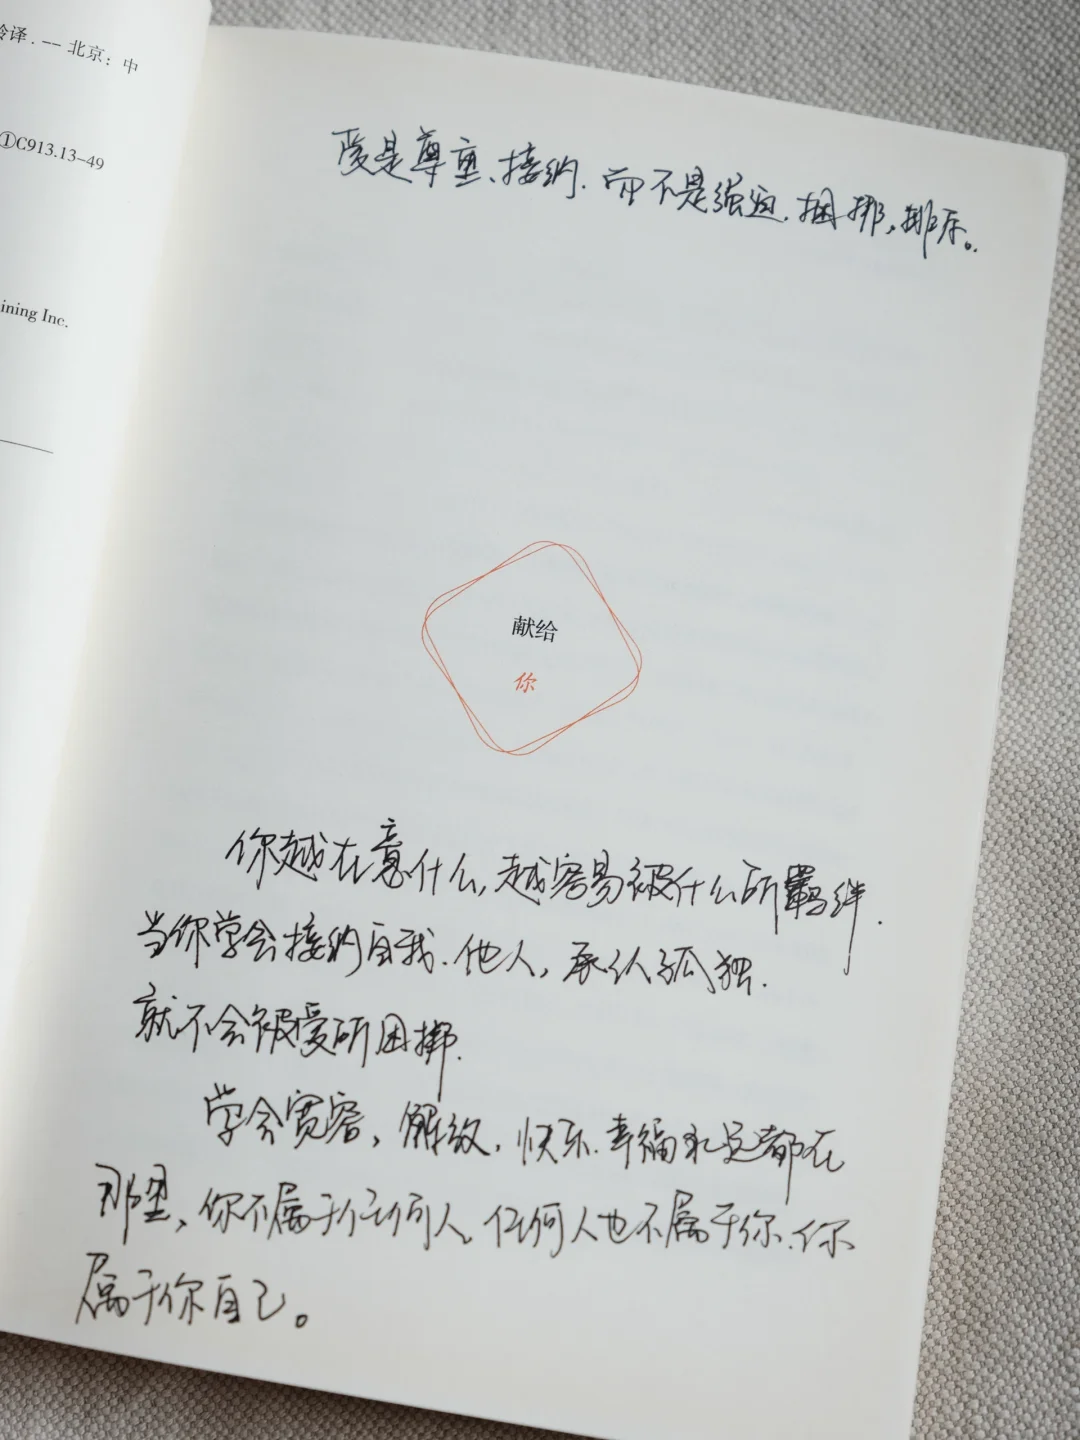 龄译. -- 北京：中
①C913.13-49
ining Inc.
爱是尊重、接纳.而不是强迫.捆绑,排斥。
献给
你
你越在意什么,越容易被什么所羁绊.
当你学会接纳自我.他人,承认孤独.
就不会被爱所困绑.
学会宽容,解放.快乐.幸福永远都在
那里,你不属于任何人.任何人也不属于你.你
属于你自己。